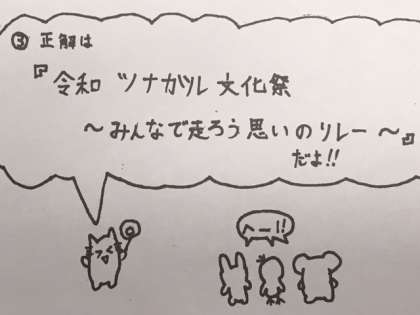 ③ 正解は
『令和 ツナガツル 文化祭
～みんなで走ろう思いのリレー～』
だよ!!
へー!!